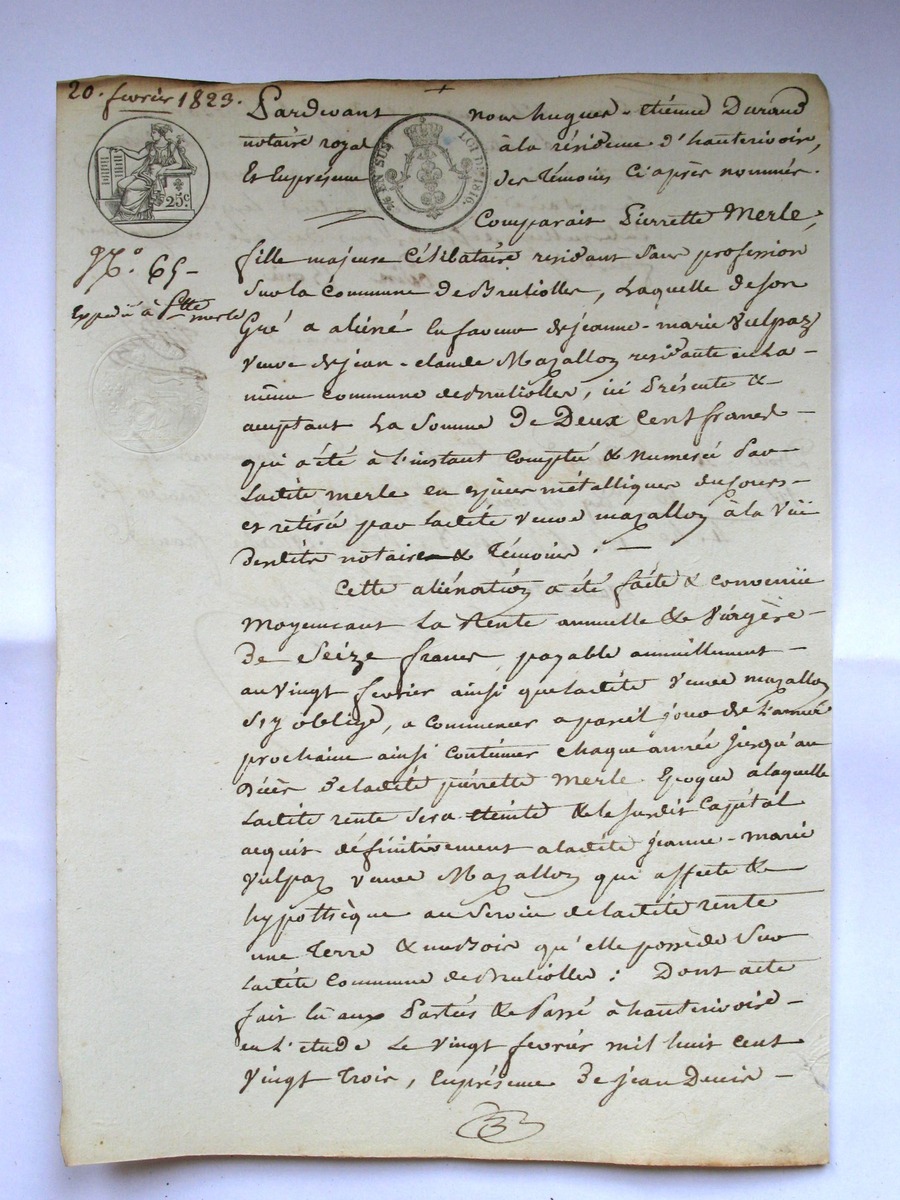 20. fevrier 1823.
Pardevant nous hugues - étienne Durand
notaire royal à la résidence d'hauterivoire,
Et En présence des témoins Ci après nommés.
EN SUS LOI DE 1816.
25c
Comparait Pierrette Merle,
N.o 65 -
fille majeure Célibataire residant sans profession
sur la Commune de Brulliolles, Laquelle de son
Expedié à Ptte merle
Gré a aliéné En faveur de jeanne - marie Vulpaz
Veuve de jean - claude Mazalloz residante en La -
même Commune de Brulliolles, ici Présente &
acceptant La Somme De Deux Cent francs -
qui a été à L'instant Comptée & Numerée Par
Ladite merle en espèces métalliques du Cours -
et retirée par Ladite Veuve mazalloz à la Vüe
desdits notaire & témoins. -
Cette aliénation a été faite & Convenüe
Moyennant La Rente annuelle & Viagère -
De Seize francs, payable annuellement -
au vingt fevrier ainsi que Ladite Veuve mazalloz
s'y oblige, a Commencer a pareil jour de L'année
prochaine ainsi Continuer chaque année jusqu'au
déces de Ladite pierrette Merle. Epoque a laquelle
Ladite rente sera éteinte & le Susdit Capital
acquis définitivement a Ladite jeanne - marie
Vulpaz Veuve Mazalloz qui affecte &
hypothèque au Service de Ladite rente
une Terre & un Bois qu'elle possède Sur
Ladite Commune de Brulliolles : Dont acte
fait Lu aux Parties & Passé à hauterivoire -
en L'etude Le vingt fevrier mil huit cent
Vingt trois, En présence De jean Denis -